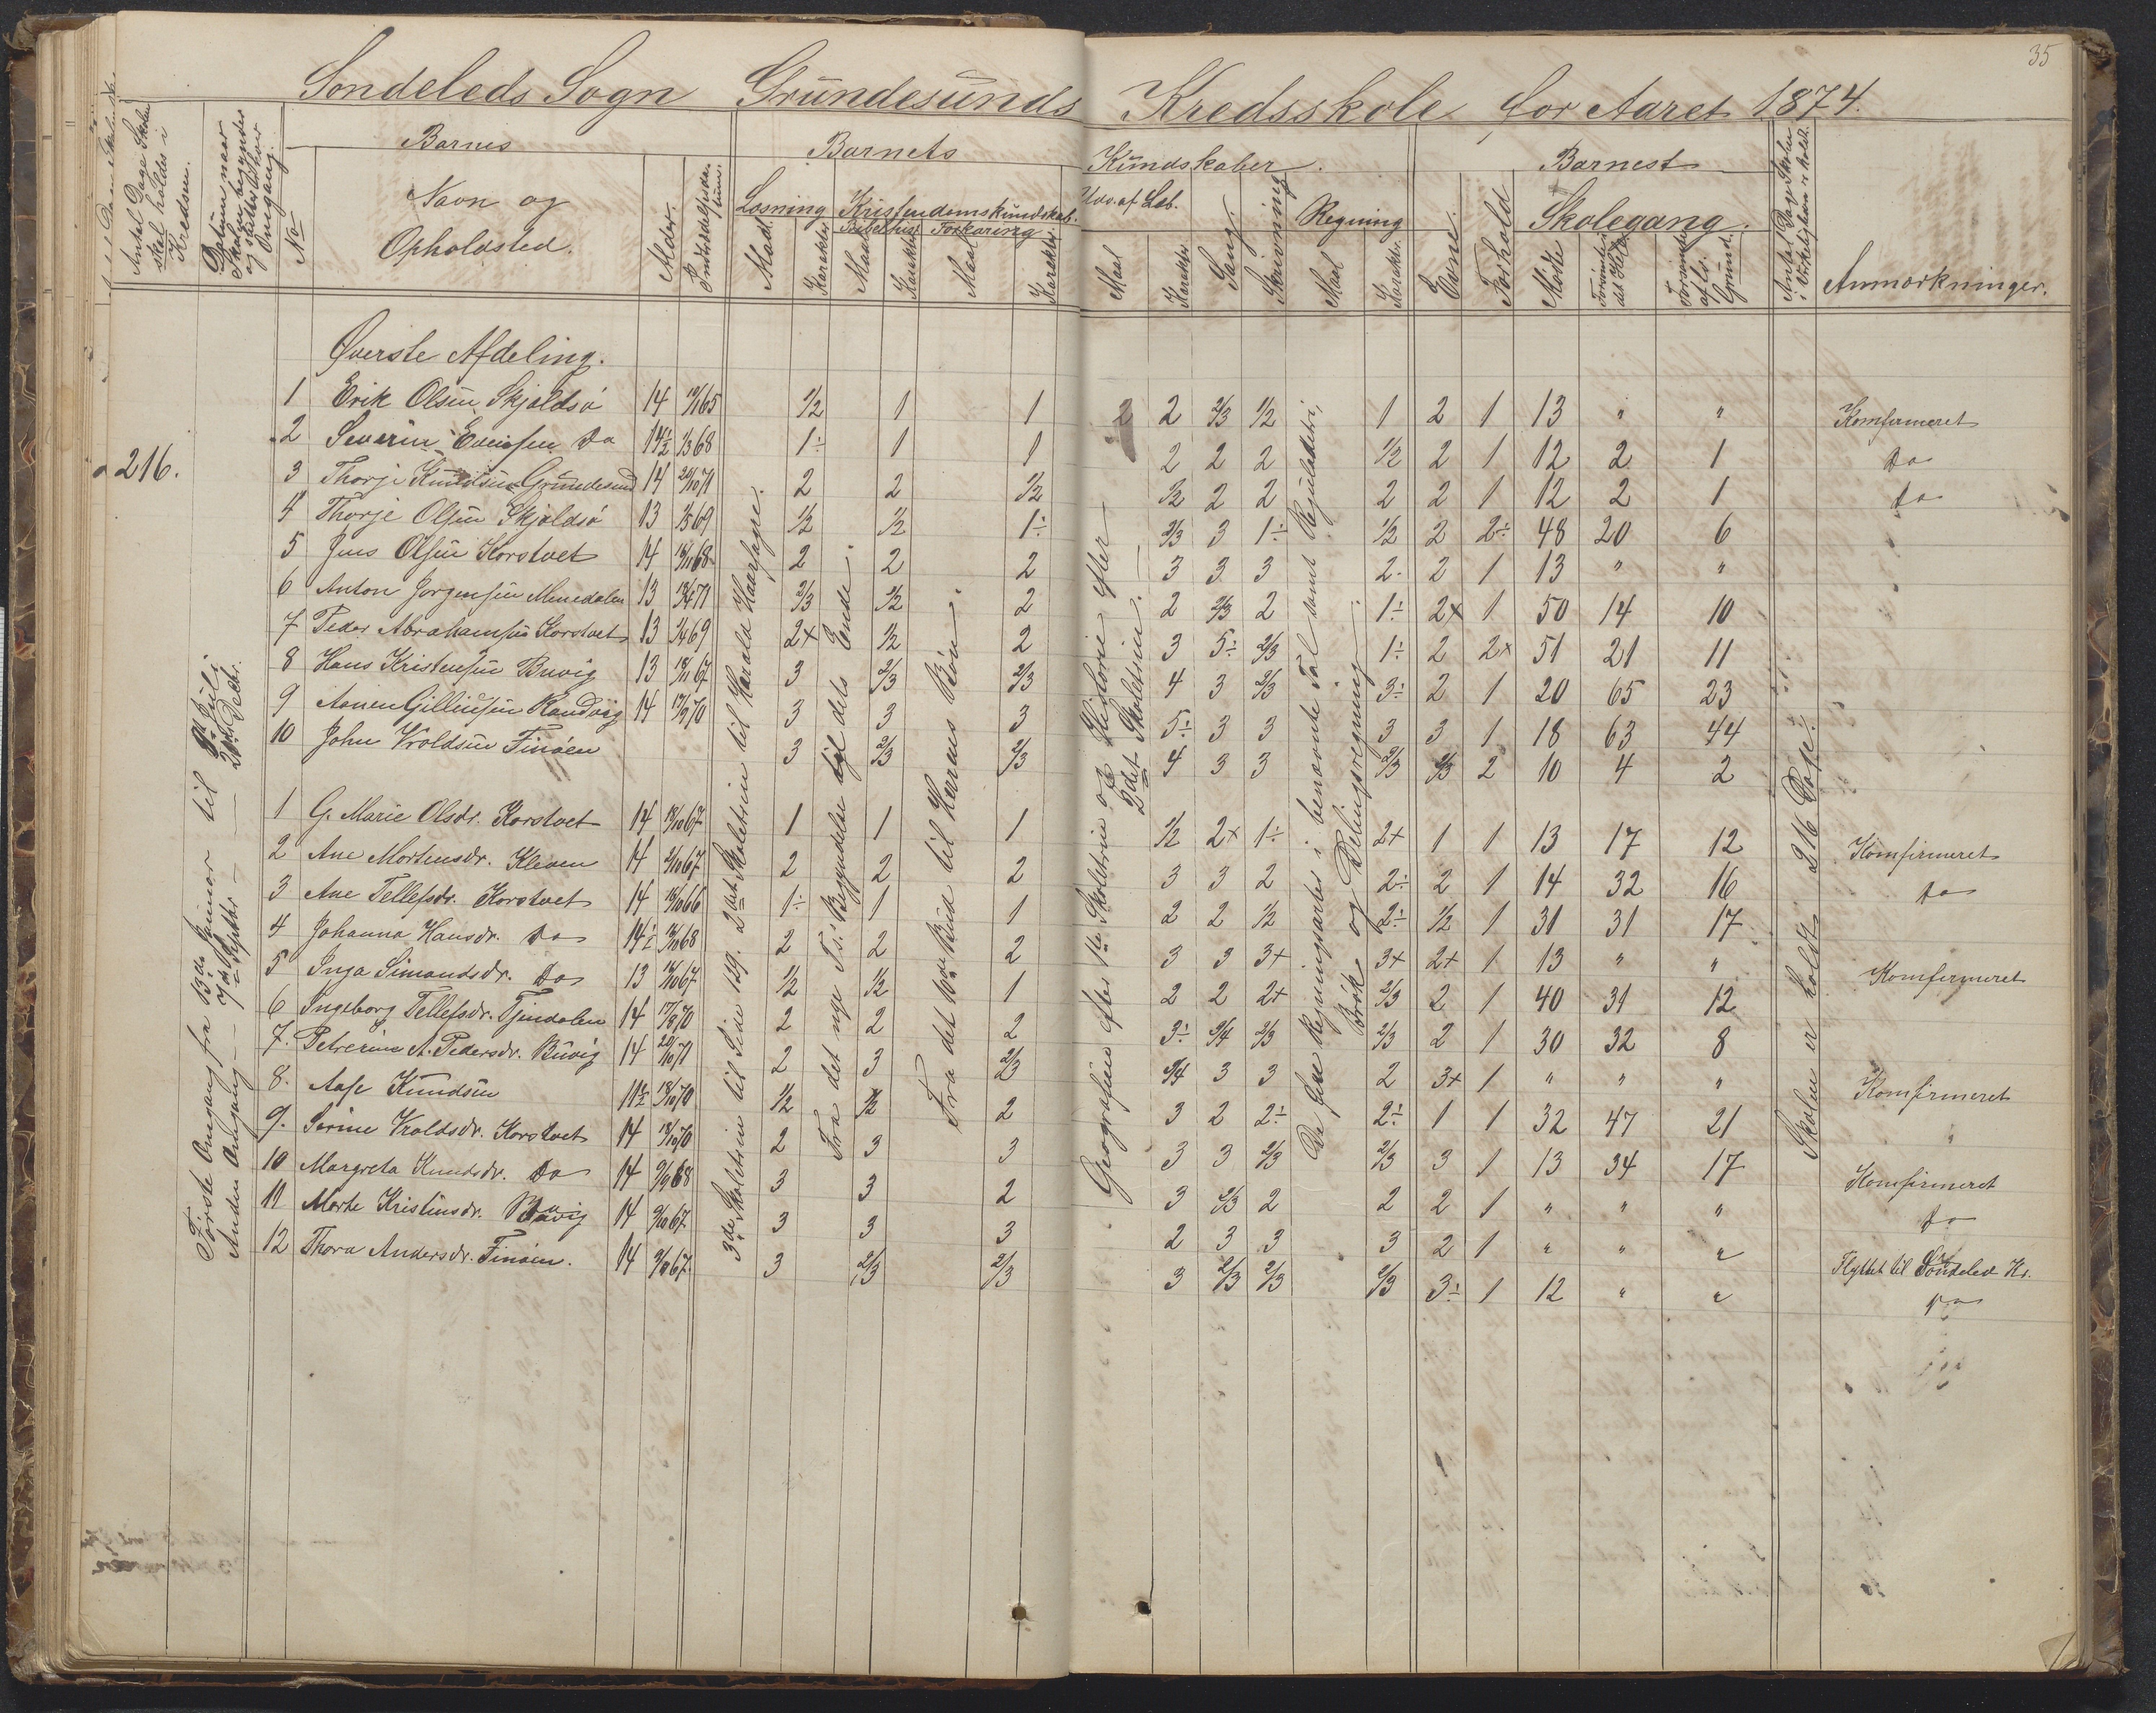 35
Søndeleds Sogn Grundesunds Kredsskole for Aaret 1874.
Antal Dage Skolen skal holdes i Kredsen.
Datum naar Skolen begynder og slutter hver Omgang.
No
Barnes
Navn og
Opholdsted.
Alder.
Indtrædelsesdatum.
Barnets Kundskaber.
Læsning
Maal
Karakter
Kristendomskundskab.
Bibelhist.
Maal
Karakter
Forklaring
Maal
Karakter
Udv. af Læb.
Maal
Karakter
Sang.
Skrivning
Regning
Maal
Karakter.
Evne.
Forhold
Barnest
Skolegang.
Mødte
Forsømte det Hele
Forsømte af lov. Grund.
Antal Dage Skolen i Virkeligheden er holdt.
Anmærkninger.
216.
Første Omgang fra 13de Januar til 8de Juli
Anden Omgang — 7de Septbr. — 20de Decbr.
Øverste Afdeling.
1 Erik Olsen Skjoldsø 14 65 1/2 1 1 2 2/3 1/2 1 2 1 13 " " Komfirmeret
2 Severin Evensen Do 14 1/2 68 1÷ 1 1 2 2 2 1/2 2 1 12 2 1 Do
3 Thorje Knudsen Grundesund 14 20/10 71 2 2 1/2 1/2 2 2 2 2 1 12 2 1 Do
4 Thorje Olsen Skjoldsø 13 69 1/2 1/2 1÷ 2/3 3 1÷ 1/2 2 2÷ 48 20 6
5 Jens Olsen Korstvet 14 68 2 2 2 3 3 3 2 2 1 13 " "
6 Anton Jørgensen 13 71 2/3 1/2 2 2 2/3 2 1÷ 2+ 1 50 14 10
7 Peder Abrahamsen Korstvet 13 69 2+ 1/2 2 3 5÷ 2/3 1÷ 2 2+ 51 21 11
8 Hans Kristensen Buvig 13 67 3 2/3 2/3 4 3 2/3 3÷ 2 1 20 65 23
9 Aanen Gilliussen Randvig 14 70 3 3 3 5÷ 3 3 3 3 1 18 63 44
10 John Vroldsen Finøen 3 2/3 2/3 4 3 3 2/3 2/3 2 10 4 2
1 G. Marie Olsdr. Korstvet 14 67 1 1 1 1/2 2+ 1÷ 2+ 1 1 13 17 12 Komfirmeret
2 Ane Mortensdr. Kleven 14 67 2 2 2 3 3 2 2÷ 2 1 14 32 16 Do
3 Ane Tellefsdr. Korstvet 14 66 1÷ 1 1 2 2 1/2 2÷ 1/2 1 31 31 17
4 Johanna Hansdr. Do 14 1/2 68 2 2 2 3 3 3+ 3+ 2+ 1 13 " " Komfermeret
5 Inga Simondsdr. Do 13 67 1/2 1/2 1 2 2 2+ 2/3 2 1 40 31 12
6 Ingeborg Tellefsdr. Tjendalen 14 17/8 70 2 2 2 3÷ 3/4 2/3 2/3 2 1 30 32 8
7. Petrerine A. Pedersdr. Buvig 14 20/10 71 2 3 2/3 3/4 3 3 2 3+ 1 " " " Komfirmeret
8. Aase Knudsen 11 1/2 70 1/2 1/2 2 3 2 2÷ 2÷ 1 1 32 47 21 "
9. Sørine Vroldsdr. Korstvet 14 70 2 3 3 3 3 2/3 2/3 3 1 13 34 17 Komfirmeret
10 Margreta Knudsdr. Do 14 68 3 3 2 3 2/3 2 2 2 1 " " " Do
11 Marte Kristensdr. Buvig 14 67 3 3 3 2 3 3 3 2 1 " " " Flyttet til Søndeled Ks.
12 Thora Andersdr. Finøen. 14 67. 3 2/3 2/3 3 2/3 2/3 2/3 3÷ 1 12 " " Do
3de Skoletrin til Side 149. 2det Skoletrin til Harald Haarfagre.
Fra det nye T.s. Begyndelse til dets Ende.
Fra det 10de Bud til Herrens Bøn.
Geografien efter 1ste Skoletrin og Historie efter 2det Skoletrin.
De fire Regningsarter i benævnte Tal samt Reguladetri, Brøk og Delingsregning.
Skolen er holdt 216 Dage.